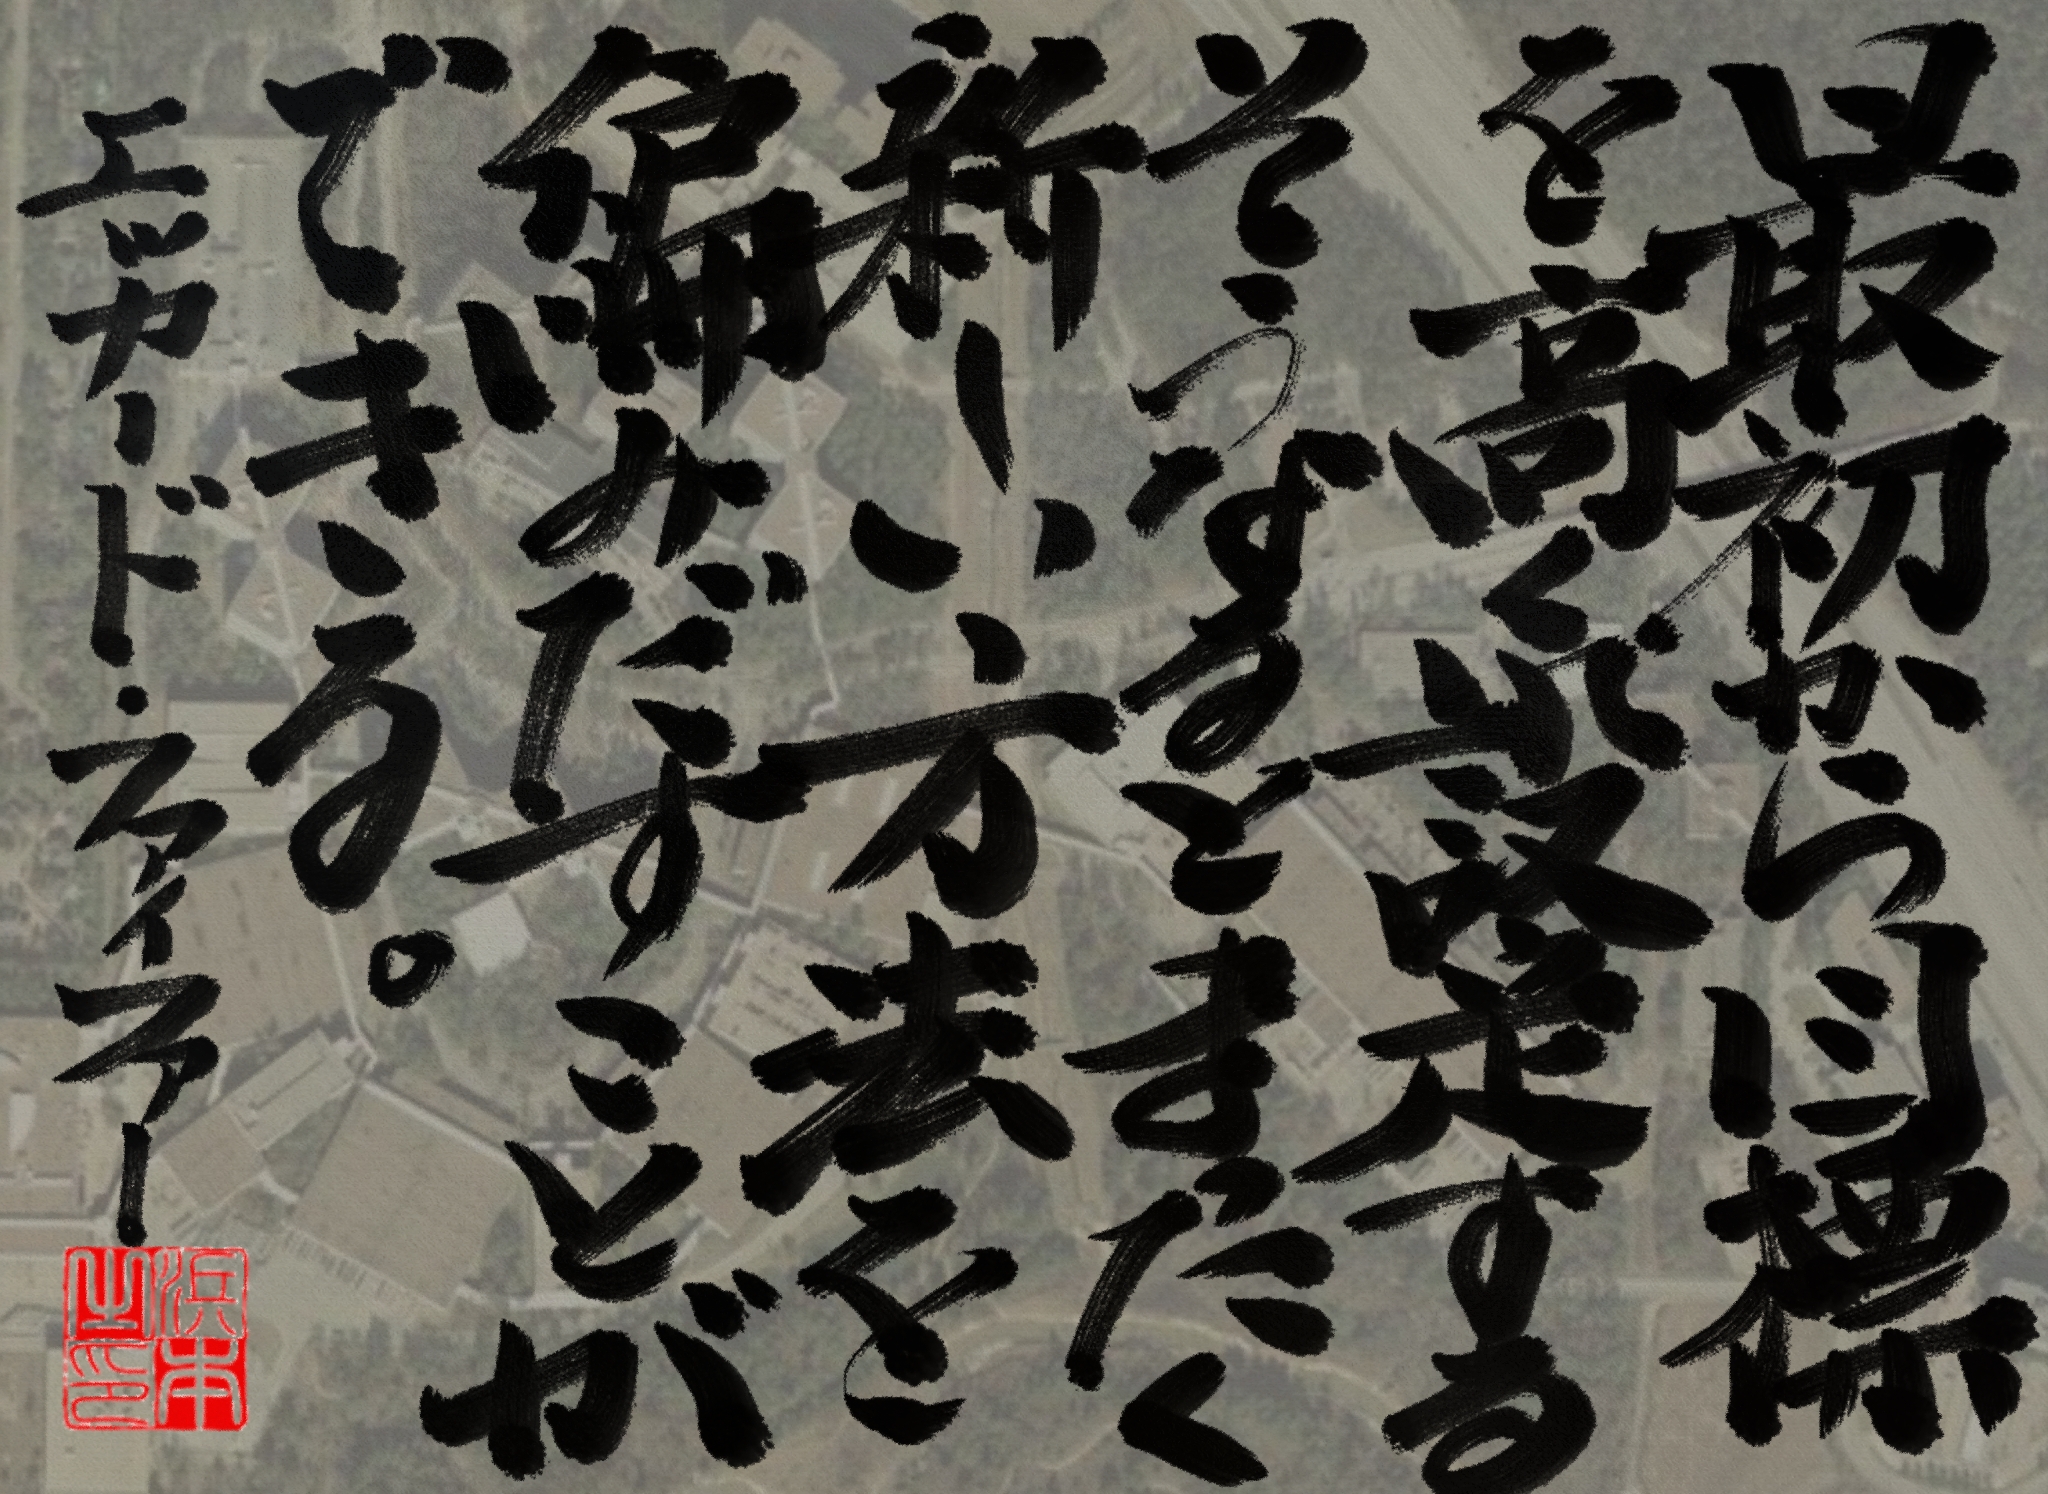 最初から目標
を高く設定する
そうなるとまったく
新しい方法を
編みだすことが
できる。
エッカード・ファイファー
浜本之印